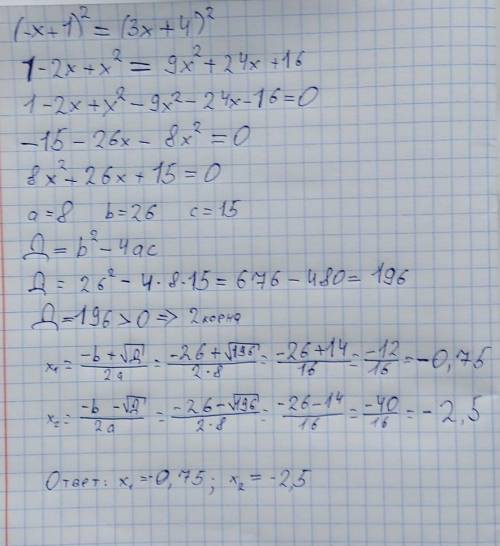 (-x+1)² = (3x+4)²
1-2x+x² = 9x²+24x+16
1-2x+x²-9x²-24x-16=0
-15-26x-8x²=0
8x²+26x+15=0
a=8 b=26 c=15
Д=b²-4ac
Д= 26²-4·8·15=676-480=196
Д=196>0=> 2 корня
x₁= (-b+√Д)/2a = (-26+√196)/2·8 = (-26+14)/16 = -12/16 = -0,75
x₂= (-b-√Д)/2a = (-26-√196)/2·8 = (-26-14)/16 = -40/16 = -2,5
Ответ: x₁=-0,75; x₂=-2,5